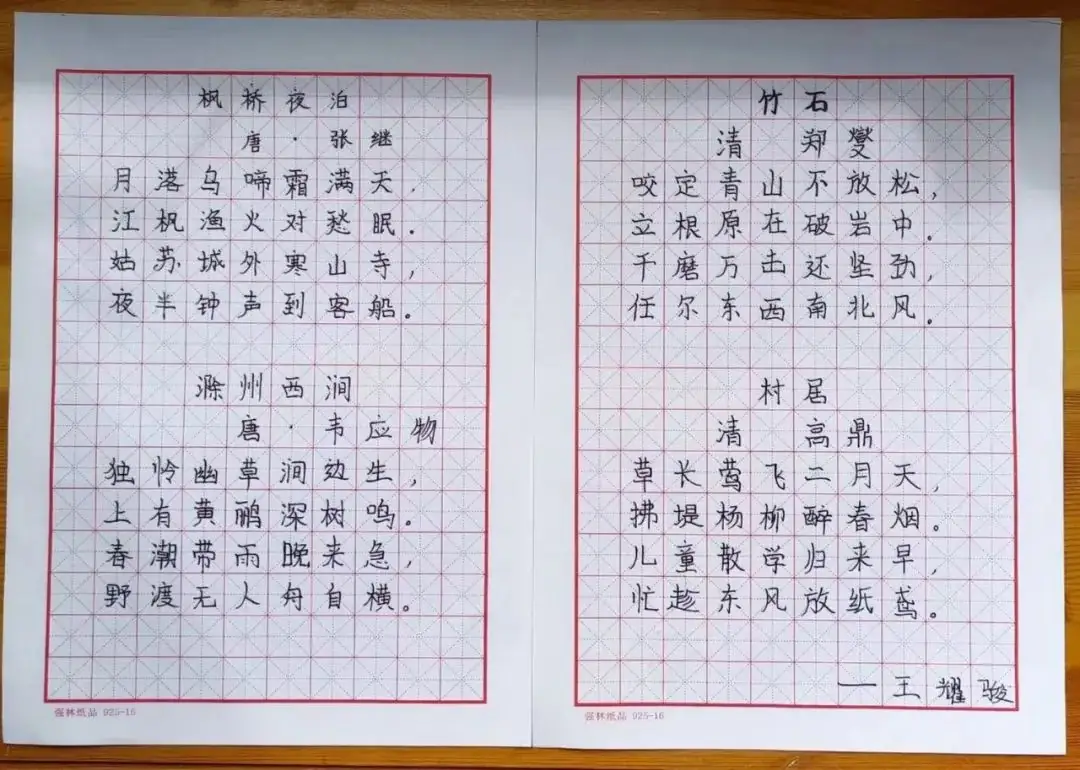 枫桥夜泊
唐·张继
月落乌啼霜满天,
江枫渔火对愁眠.
姑苏城外寒山寺,
夜半钟声到客船。
滁州西涧
唐·韦应物
独怜幽草涧边生,
上有黄鹂深树鸣。
春潮带雨晚来急,
野渡无人舟自横。
强林纸品 925-16
竹石
清 郑燮
咬定青山不放松,
立根原在破岩中.
千磨万击还坚劲,
任尔东西南北风.
村居
清 高鼎
草长莺飞二月天,
拂堤杨柳醉春烟。
儿童散学归来早,
忙趁东风放纸鸢。
——王耀骏
强林纸品 925-16